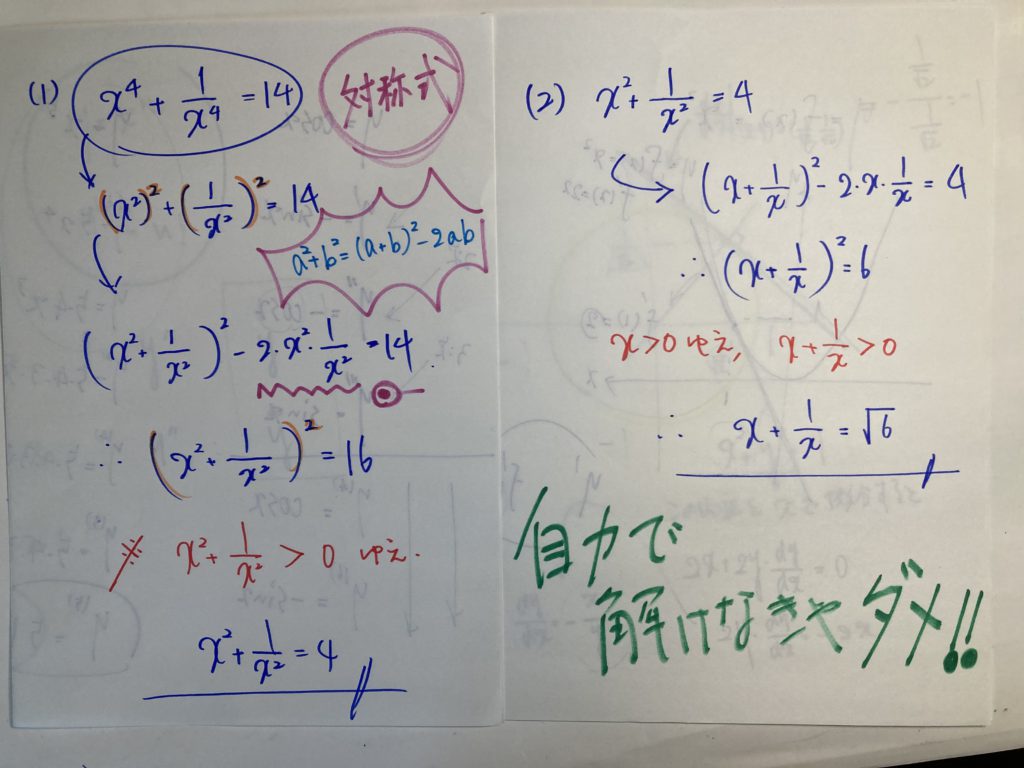 (1) x⁴ + 1/x⁴ = 14
対称式
(x²)² + (1/x²)² = 14
a²+b² = (a+b)² - 2ab
(x² + 1/x²)² - 2·x²·1/x² = 14
∴ (x² + 1/x²)² = 16
x² + 1/x² > 0 ゆえ.
x² + 1/x² = 4
(2) x² + 1/x² = 4
(x + 1/x)² - 2·x·1/x = 4
∴ (x + 1/x)² = 6
x > 0 ゆえ, x + 1/x > 0
∴ x + 1/x = √6
自力で
解けなきゃダメ!!